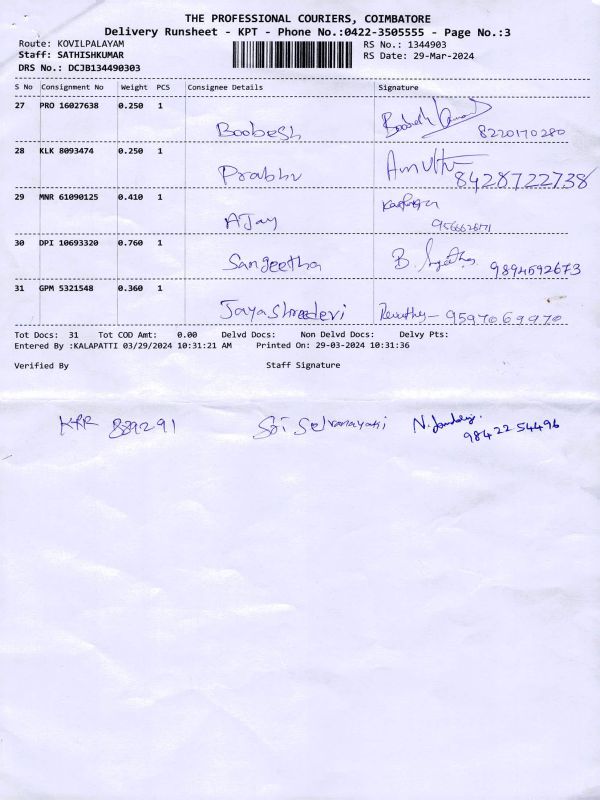 THE PROFESSIONAL COURIERS, COIMBATORE
Delivery Runsheet - KPT - Phone No.:0422-3505555 - Page No.:3
Route: KOVILPALAYAM
RS No.: 1344903
Staff: SATHISHKUMAR
RS Date: 29-Mar-2024
DRS No.: DCJB134490303
S No Consignment No Weight PCS Consignee Details Signature
27 PRO 16027638 0.250 1 Boobesh 8220170280
28 KLK 8093474 0.250 1 Prabhu 8428722738
29 MNR 61090125 0.410 1 AJay
30 DPI 10693320 0.760 1 Sangeetha B. 9894692673
31 GPM 5321548 0.360 1 Jayashreedevi Revathy- 9597069970
Tot Docs: 31 Tot COD Amt: 0.00 Delvd Docs: Non Delvd Docs: Delvy Pts:
Entered By :KALAPATTI 03/29/2024 10:31:21 AM Printed On: 29-03-2024 10:31:36
Verified By Staff Signature
KRR 889291 Sri 98422 54496